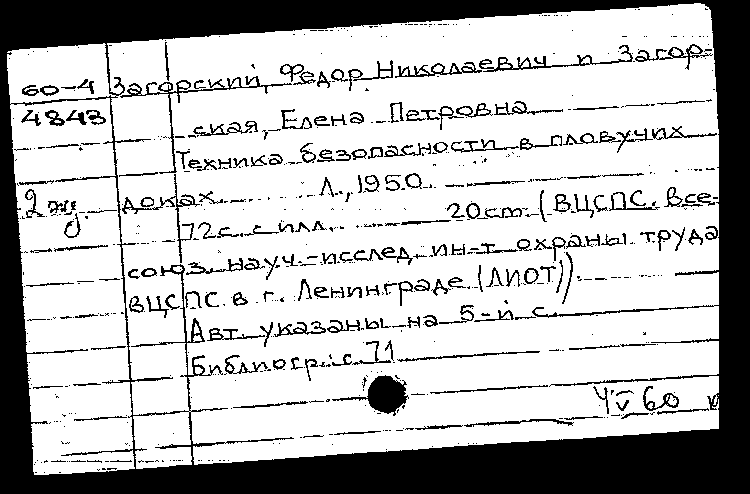 60-4 Загорский, Федор Николаевич и Загор=
4843 ская, Елена Петровна.
Техника безопасности в пловучих
2 эк. доках. Л., 1950.
72с. с илл. 20см. (ВЦСПС. Все-
союз. науч.-исслед. ин-т охраны труда
ВЦСПС в г. Ленинграде (ЛИОТ)).
Авт. указаны на 5-й с.
Библиогр.: с. 71
4/V 60